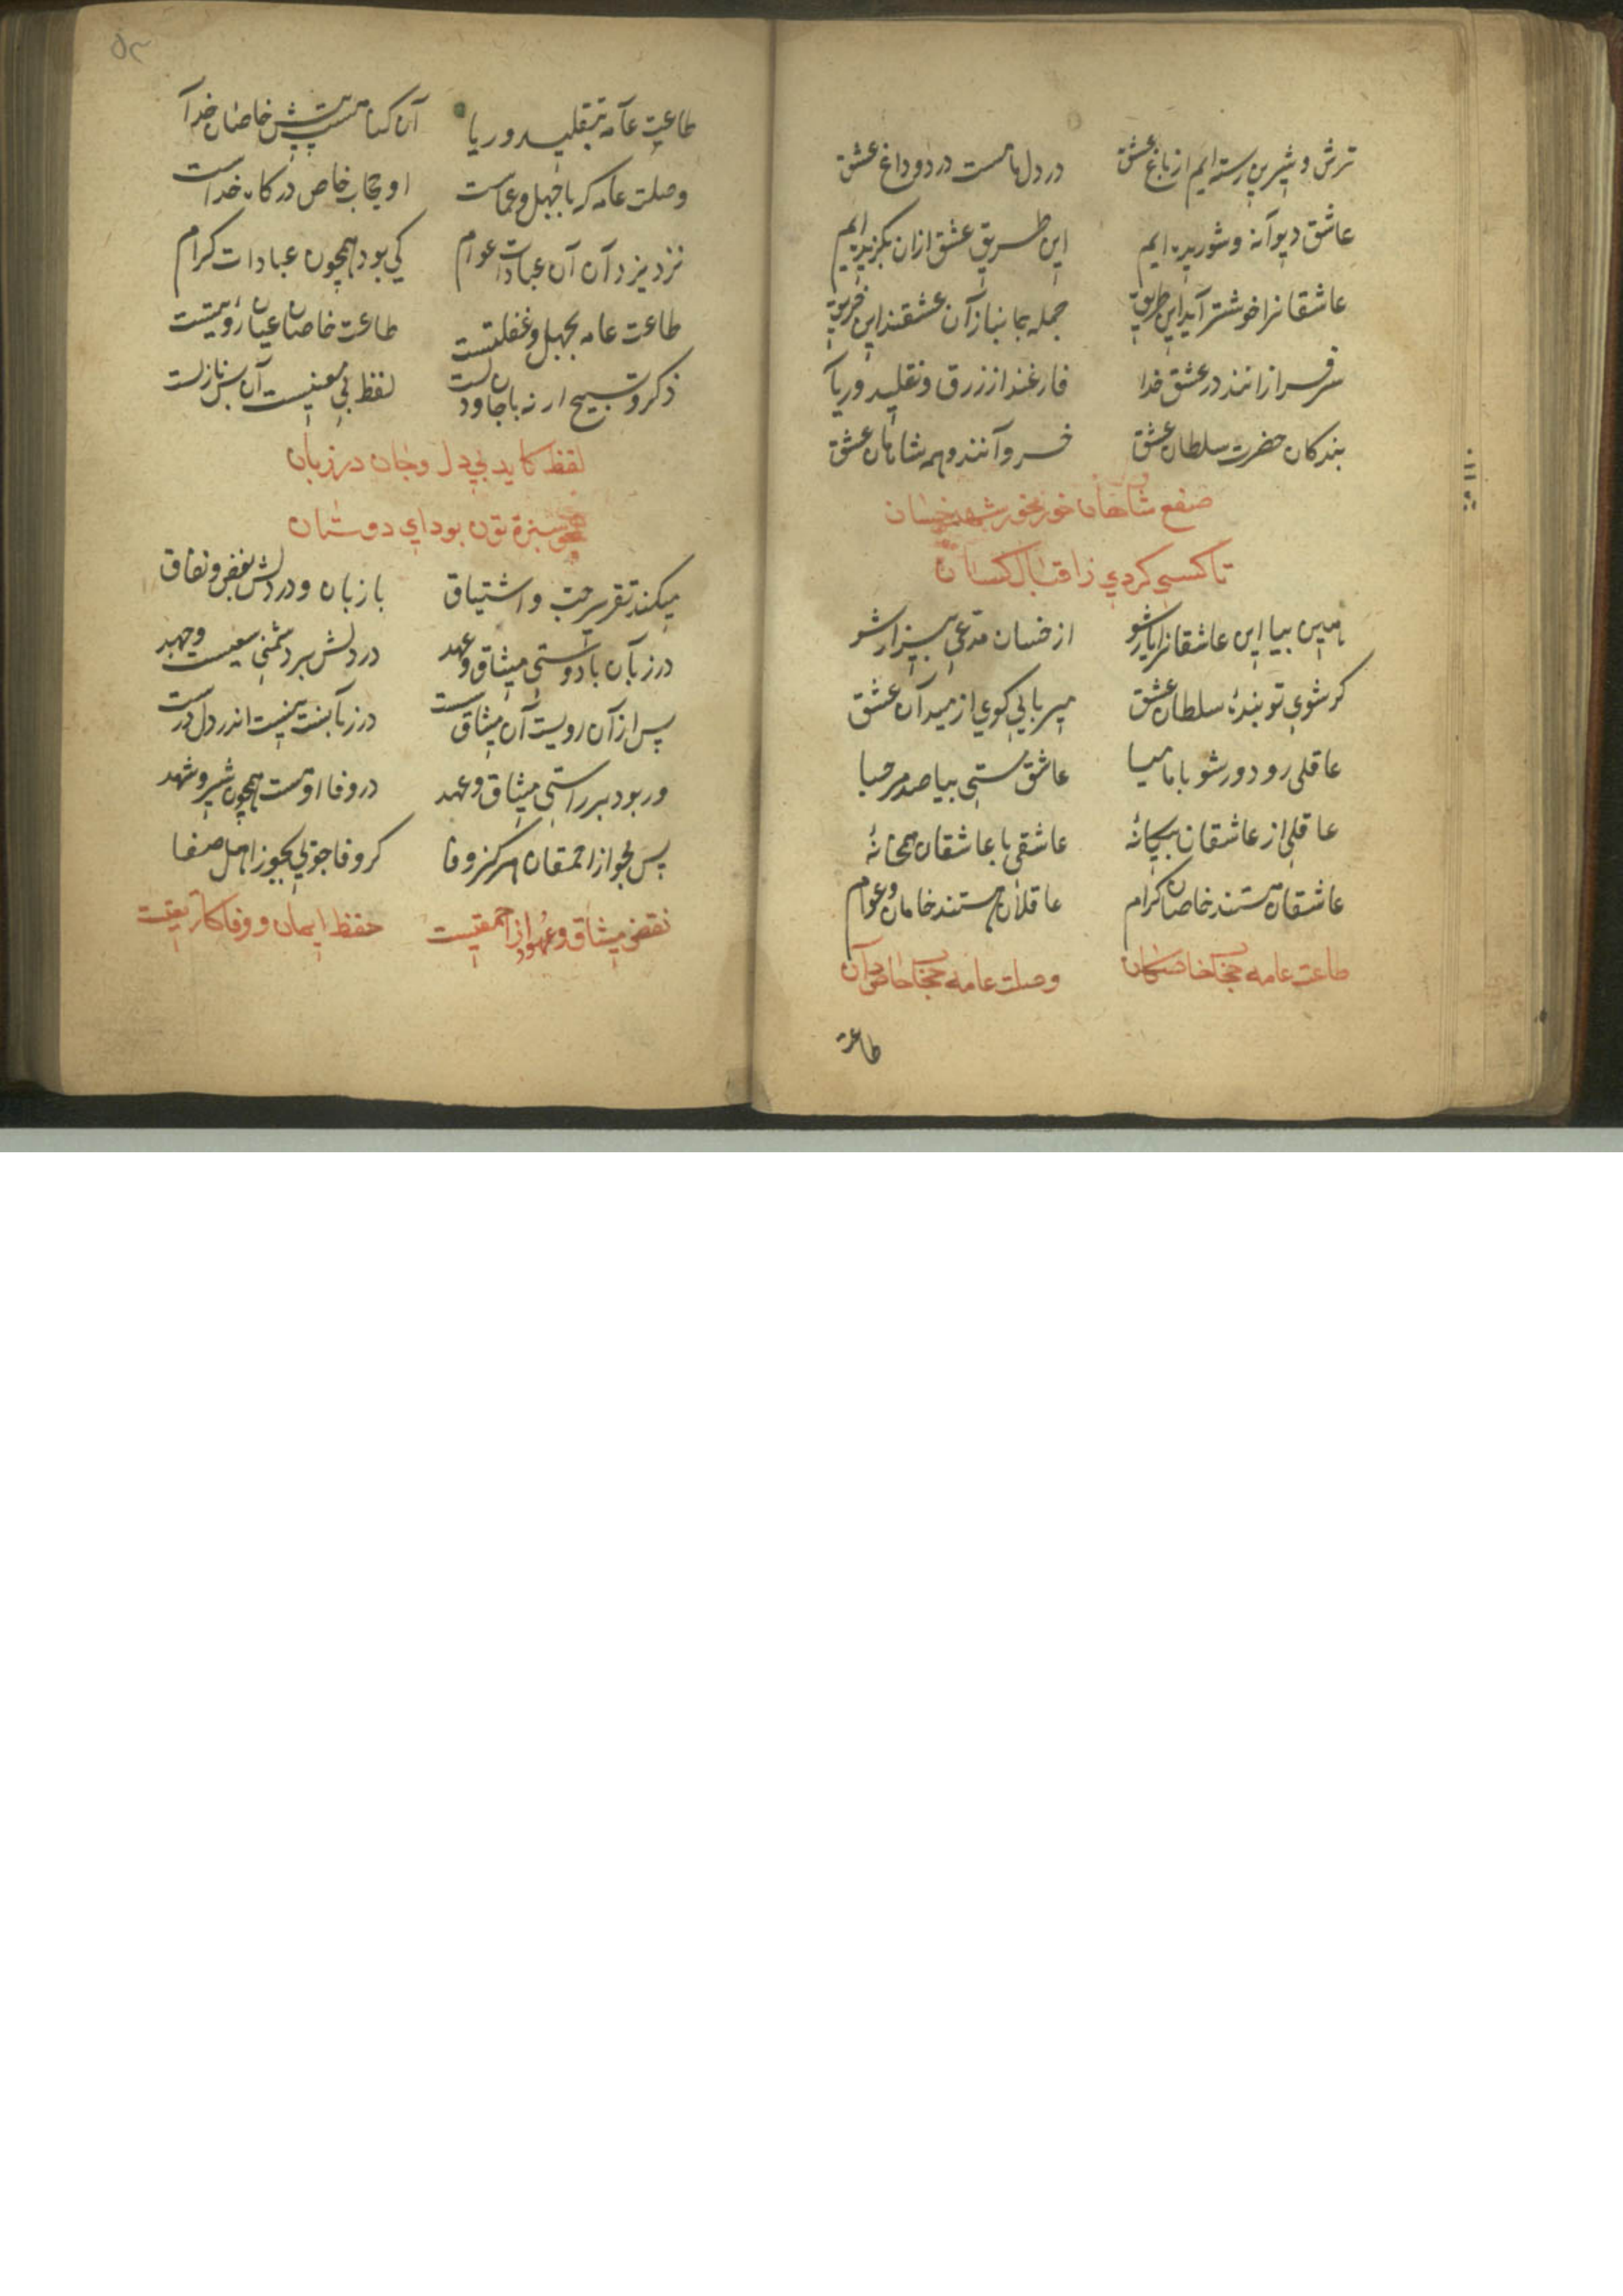 ترش و شیرین رسته ایم از باغ عشق در دل ماست درد و داغ عشق
عاشق دیوانه و شوریده ایم این طریق عشق ازان بگزیده ایم
عاشقانرا خوشتر آید این طریق جمله جانبازان عشقند این فریق
سرفرازانند در عشق خدا فارغند از زرق و تقلید و ریا
بندکان حضرت سلطان عشق خسروانند و همه شاهان عشق
صفع شاهان خور مخور شهد خسان
تا کسی کردی ز اقبال کسان
هین بیا این عاشقانرا یار شو از خسان مدعی بیزار شو
کر شوی تو بندهٔ سلطان عشق میربایی کوی از میدان عشق
عاقلی رو دور شو با ما میا عاشق مستی بیا صد مرحبا
عاقلی از عاشقان بیکانهٔ عاشقی با عاشقان همخانهٔ
عاشقان هستند خاصان کرام عاقلان هستند خامان و عوام
طاعت عامه خاصکان وصلت عامه حجاب خاص دان
طاعة
۵۲
طاعت عامه بتقلید و ریا آن کناهست پیش خاصان خدا
وصلت عامه که با جهل و عماست او حجاب خاص درکاه خداست
نزد یزدان آن عبادات عوام کی بود همچون عبادات کرام
طاعت عامه بجهل و غفلتیست طاعت خاصان عیان رؤیتیست
ذکر و تسبیح ار نه با جان و دلست لفظ بی معنیست آن بس نازلست
لفظ کاید بی دل و جان در زبان
همچو سبزه تون بود ای دوستان
میکند تقریر حب و اشتیاق با زبان و در دلش بغض و نفاق
در زبان با دوستی میثاق و عهد در دلش بر دشمنی سعیست و جهد
پس از آن رویست آن میثاق سست در زبانست نیست اندر دل درست
ور بود بر راستی میثاق و عهد در وفا اوهست همچون شیر و شهد
پس مجو از احمقان هرکز وفا کر وفا جویی بجو ز اهل صفا
نقض میثاق و عهود از احمقیست حفظ ایمان و وفا کار تقیست